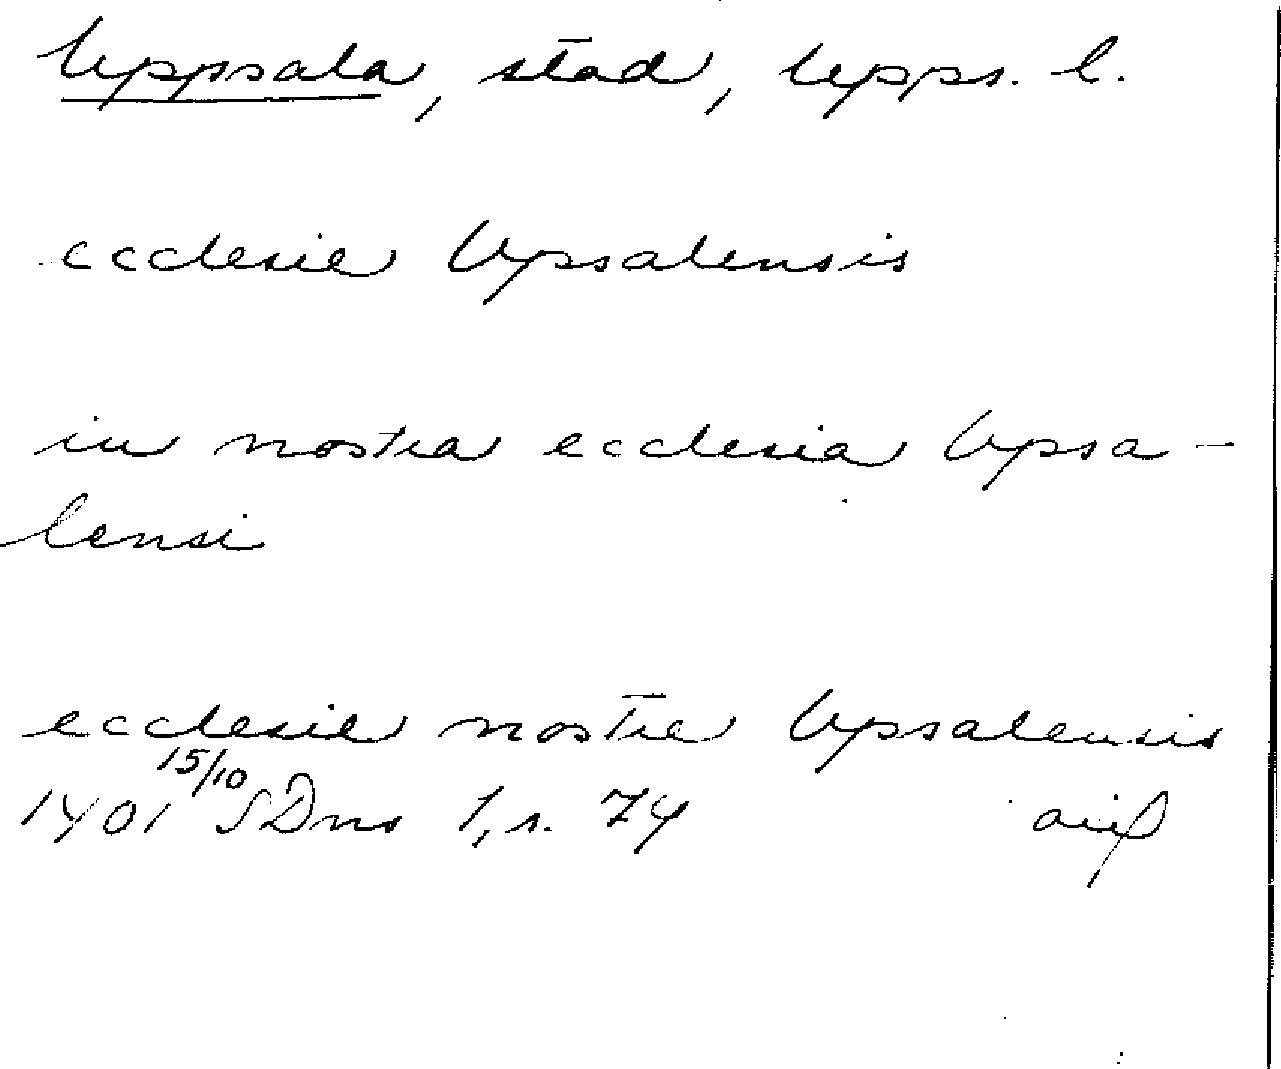 Uppsala, stad, Upps. l.
ecclesie Upsalensis
in nostra ecclesia Upsa-
lensi
ecclesie nostre Upsalensis
1401 15/10 SDns 1, s. 74